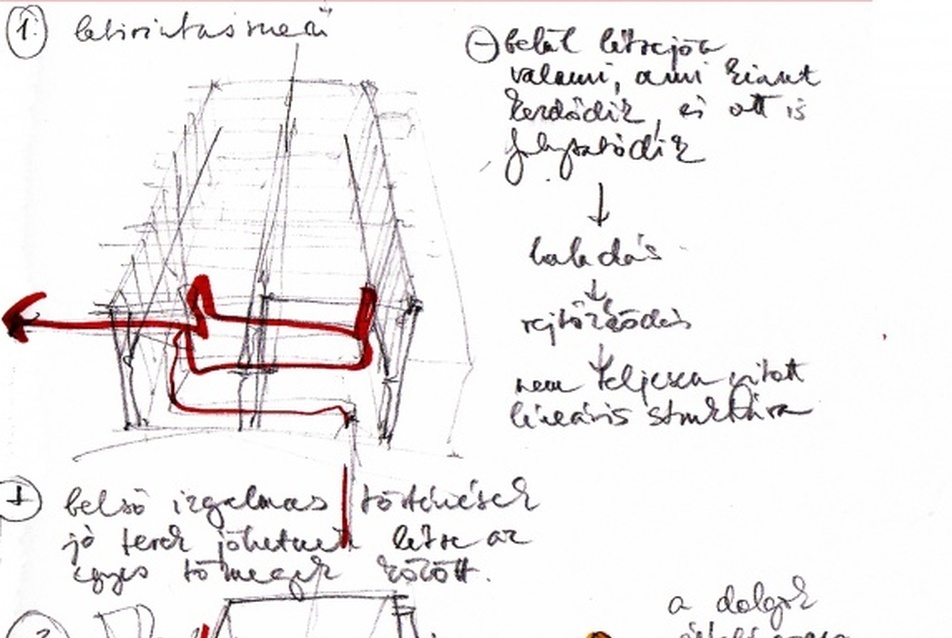 1. labirintusszerű
⊖ belül létrejön
valami, ami kint
kezdődik, és ott is
folytatódik
↓
haladás
↓
rejtőzködés
↓
nem teljesen nyitott
lineáris struktúra
⊕ belső izgalmas történések
jó terek jöhetnek létre az
egyes tömegek között.
2.
a dolgok